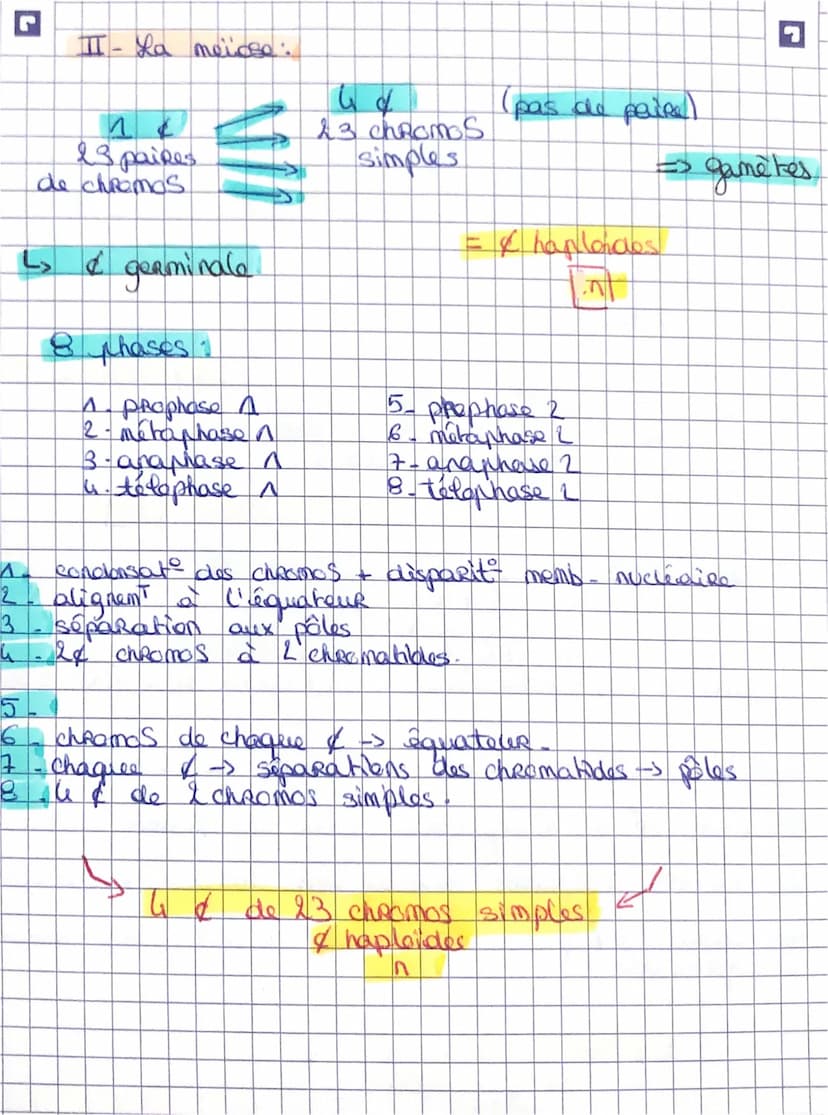 II - La meïose :
1 ¢
23 paires
de chromos
4 ¢
23 chromos
simples
(pas de paire)
=> gamètes
= ¢ haploïdes
n
↳ ¢ germinale
8 phases :
1. prophase 1
2 - métaphase 1
3 - anaphase 1
4. télophase 1
5 - prophase 2
6 - métaphase 2
7 - anaphase 2
8 - télophase 2
1 - condensat° des chromos + disparit° memb - nucléaire
2 - alignemT à l'équateur
3 - séparation aux pôles
4 - 2¢ chromos à 2 chromatides.
5 -
6 - chromos de chaque ¢ -> équateur -
7 - chaque ¢ -> séparations des chromatides -> pôles
8 . 4 ¢ de 2 chromos simples .
4 ¢ de 23 chromos simples
¢ haploïdes
n